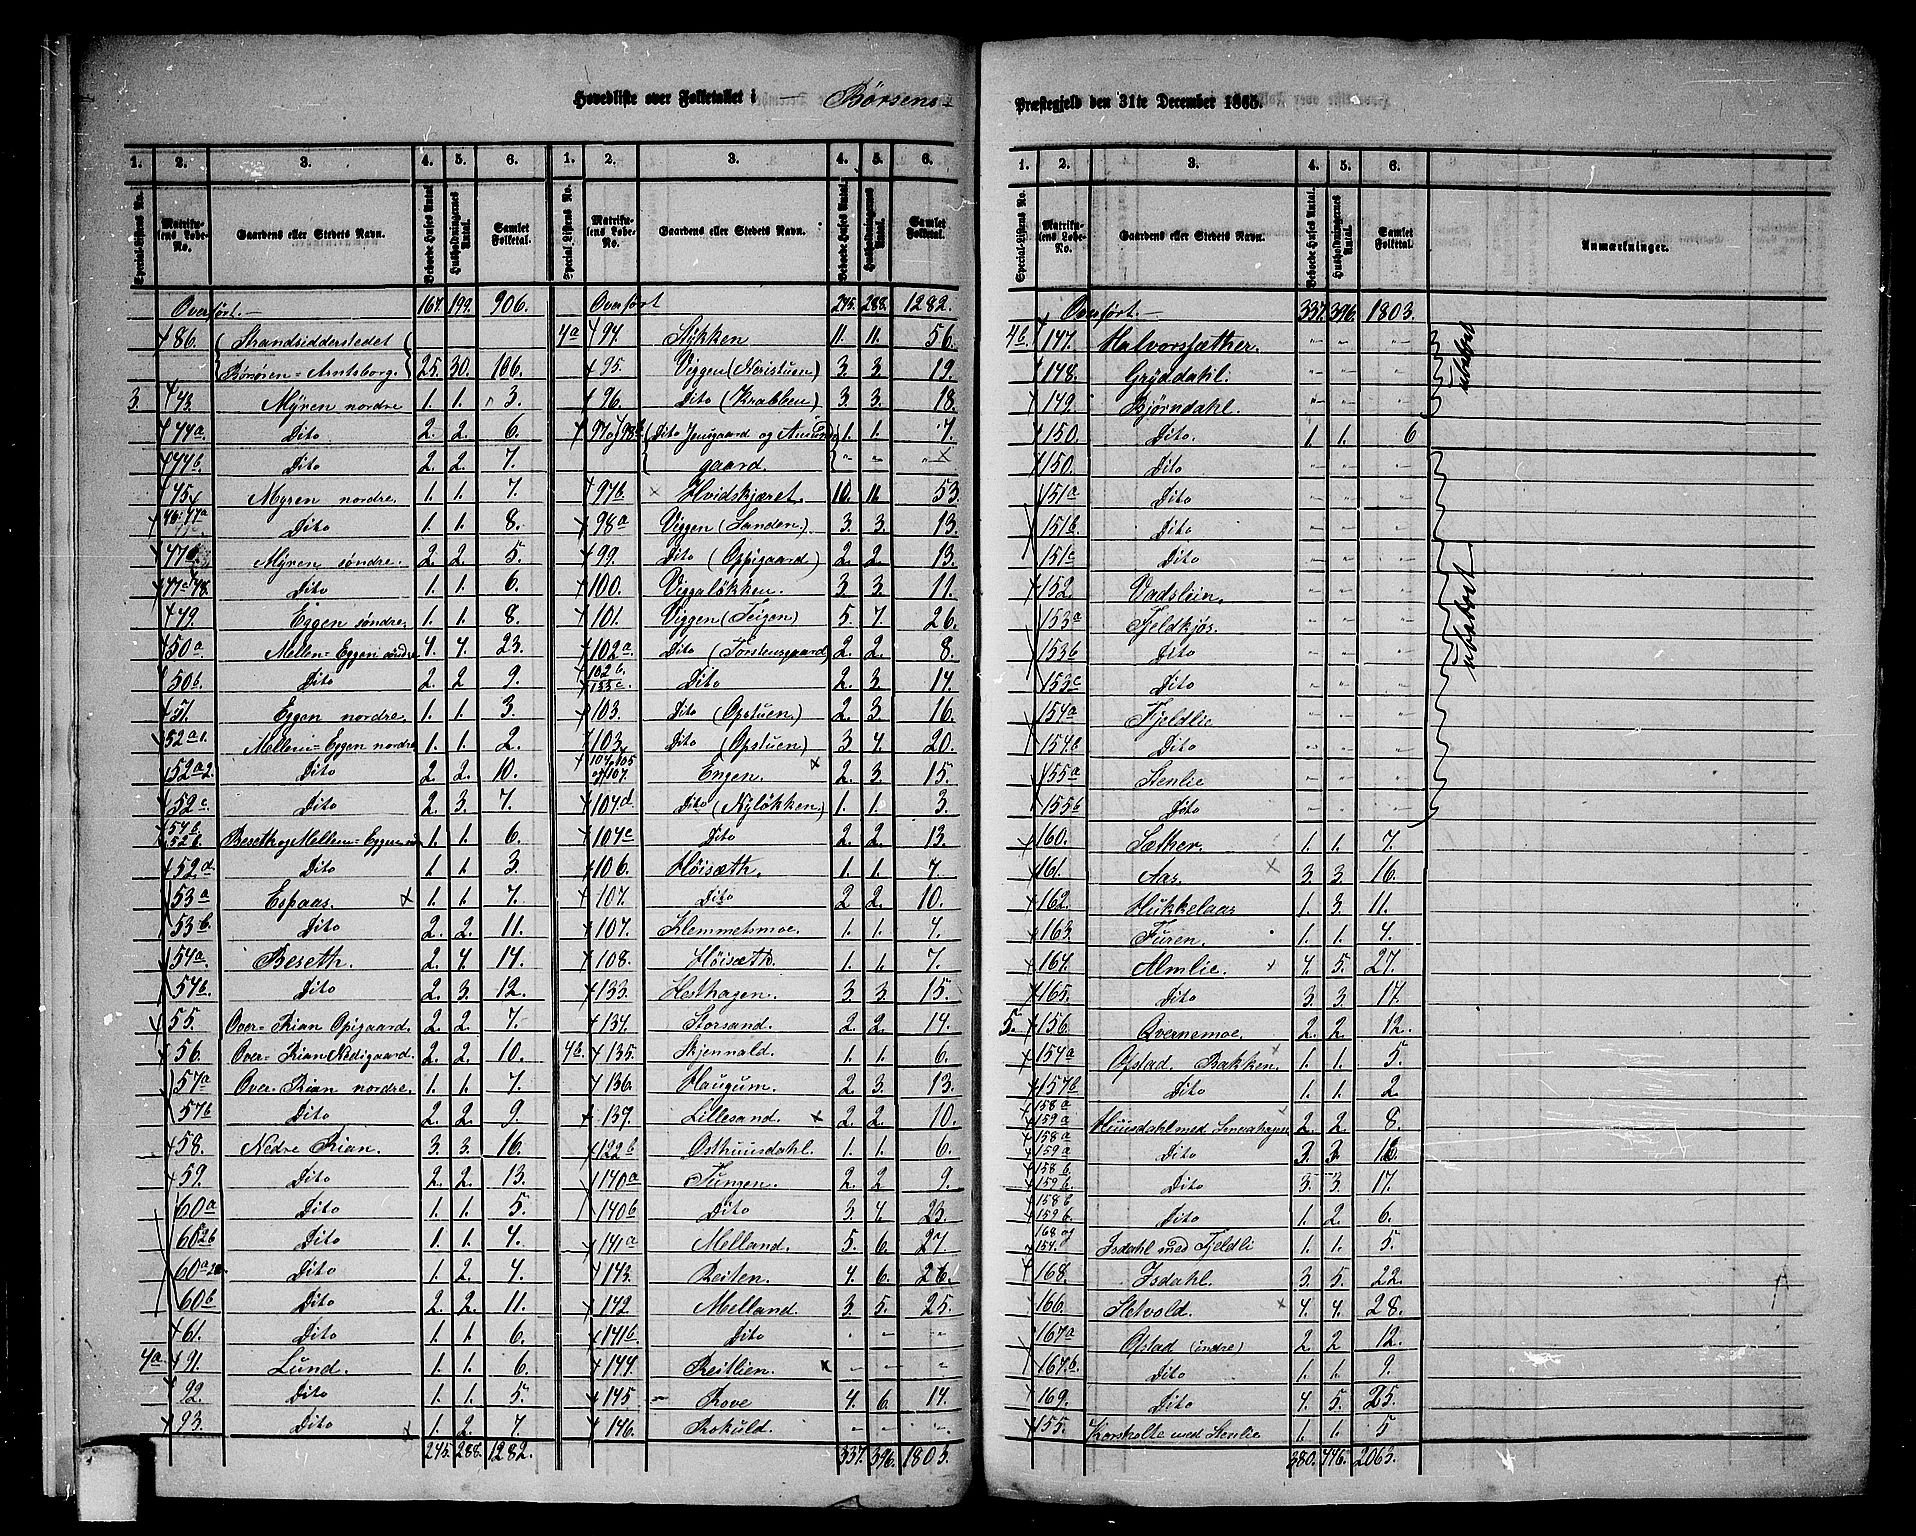 Hovedliste over Folketallet i Børsens
Præstegjeld den 31te December 1865.
1. 2. 3. 4. 5. 6. 1. 2. 3. 4. 5. 6.
Special-Listens No. Matrikulens Løbe-No. Gaardens eller Stedets Navn. Beboede Huses Antal. Husholdningernes Antal. Samlet Folketal. Special-Listens No. Matrikulens Løbe-No. Gaardens eller Stedets Navn. Beboede Huses Antal. Husholdningernes Antal. Samlet Folketal.
Overført. 167. 199. 906.
86. Strandsidderstedet
Børsøren=Arntsborg. 25. 30. 106.
3. 43. Myren nordre 1. 1. 3.
44a Dito 2. 2. 6.
44b. Dito 2. 2. 7.
45 Myren nordre. 1. 1. 7.
46. 47a Dito 1. 1. 8.
47b. Myren søndre. 2. 2. 5.
47c 48. Dito 1. 1. 6.
49. Eggen søndre. 1. 1. 8.
50a. Mellem=Eggen søndre 4. 4. 23.
50b. Dito 2. 2 9.
51. Eggen nordre. 1. 1. 3.
52a1. Mellem=Eggen nordre 1. 1. 2.
52a2. Dito 2. 2. 10.
52c. Dito 2. 3. 7.
54b. 52b. Beseth og Mellem=Eggen 1. 1. 6.
52d Dito 1. 1. 3.
53a Espaas. 1. 1. 7.
53b. Dito 2. 2. 11.
54a. Beseth. 2. 4. 14.
54b. Dito 2. 3. 12.
55. Over-Rian Opigaard. 2. 2. 7.
56. Over-Rian Nedigaard. 2. 2. 10.
57a Over-Rian nordre. 1. 1. 7.
57b Dito 2. 2. 9.
58. Nedre Rian. 3. 3. 16.
59. Dito 2. 2. 13.
60a Dito 1. 1. 5.
60 Dito 1. 1. 4.
60a Dito 1. 2. 4.
60b Dito 2. 2. 11.
61. Dito 1. 1. 6.
4a 91. Lund. 1. 1. 6.
92. Dito 1. 1. 5.
93. Dito 1. 2. 7.
245. 288. 1282.
Overført 245. 288. 1282.
4a 94. Stykken 11. 11. 56.
95. Viggen (Neristuen) 3. 3. 19.
96. Dito (Krabben) 3. 3. 18.
97 og 98b Dito Jensgaard og Amunds 1. 1. 7.
gaard.
97b. Hvidskjæret. 10. 11. 53.
98a Viggen (Sanden.) 3. 3. 13.
99. Dito (Oppigaard) 2. 2. 13.
100. Viggaløkken. 3. 3. 11.
101. Viggen (Teigen) 5. 7. 26.
102a Dito (Torstensgaard) 2. 2. 8.
102b. 133c. Dito 2. 3. 14.
103. Dito (Opstuen.) 2. 3. 16.
103. Dito (Opstuen) 3. 4. 20.
104. 105 og 107. Engen. 2. 3. 15.
104d Dito (Nyløkken) 1. 1. 3.
104c Dito 2. 2. 13.
106. Høisæth. 1. 1. 7.
107. Dito 2 2. 10.
107. Klemmetsmoe. 1. 1. 4.
108. Høisæth. 1. 1. 7.
133. Hesthagen. 3. 3. 15.
134. Storsand. 2. 2. 14.
4b 135. Skjennald. 1. 1. 6.
136. Haugum. 2 3. 13.
137. Lillesand. 2. 2. 10.
122b Osthuusdahl. 1. 1. 6.
140a Tungen. 2. 2 9.
140b Dito 3. 4. 23.
141a Melland. 5. 6. 27.
143. Reiten. 4. 6. 26.
142 Melland. 3. 5. 25.
141b Dito
144. Reitlien.
145 Rove 4. 6. 14.
146. Rokuld.
337. 396. 1803.
1. 2. 3. 4. 5. 6.
Special-Listens No. Matrikulens Løbe-No. Gaardens eller Stedets Navn. Beboede Huses Antal. Husholdningernes Antal. Samlet Folketal. Anmærkninger.
Overført. 337. 396. 1803.
4b 147. Halvorsæther.
148. Gryddahl. ubebot
149. Bjørndahl.
150. Dito. 1. 1. 6
150. Dito
151a Dito
151b Dito
151c Dito
152. Vadslein.
153a Fjeldkjøs. ubebot
153b Dito
153c Dito
154a Fjeldlie
154b Dito
155a Stenlie
155b Dito
160. Sæther. 1. 1. 7.
161. Aas. 3. 3. 16.
162. Hukkelaas 1. 3. 11.
163. Furen. 1. 1. 4.
164. Almlie. 4. 5. 27.
165. Dito 3. 3. 17.
5. 156. Qvernemoe. 2. 2. 12.
154a Ofstad Bakken. 1. 1. 5.
157b. Dito 1. 1. 2.
158a 159a Huusdahl med 2. 2. 8.
158a 159a Dito 3. 3.
158b 159b Dito 3. 3. 17.
158b 159b. Dito 1. 2. 6.
168 og 154. Isdahl med Fjeldli 1. 1. 5.
168. Isdahl. 3. 5. 22.
166. Setvold. 4. 4. 28.
167a Ofstad (indre) 2. 2 12.
167b Dito 1. 1. 9.
169. Dito 4. 5. 25.
155. Korsholte med Stenlie 1. 1. 5
380. 446. 2063.